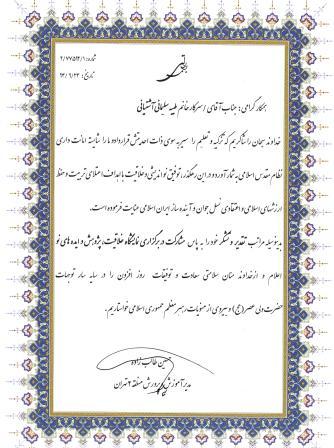 شماره: ۲/۷۷۵۱۲/۱
تاریخ: ۹۳/۶/۲۲
همکار گرامی: جناب آقای / سرکار خانم طیبه سلیمانی آشتیانی
خداوند سبحان را شاکریم که تزکیه و تعلیم را سیر به سوی ذات احدیتش قرار داده و ما را شایسته امانت داری
نظام مقدس اسلامی به شمار آورده و در این رهگذر، توفیق نواندیشی و خلاقیت با اهداف اعتلای تربیت و حفظ
ارزشهای اسلامی و اعتقادی نسل جوان و آینده ساز ایران اسلامی عنایت فرموده است.
بدینوسیله مراتب تقدیر و تشکر خود را به پاس مشارکت در برگزاری نمایشگاه خلاقیت، پژوهش و ایده های نو
اعلام و از خداوند منان سلامتی سعادت و توفیقات روز افزون را در سایه سار توجهات
حضرت ولی عصر (عج) و پیروی از منویات رهبر معظم جمهوری اسلامی خواستاریم.
حسین طالب زاده
مدیر آموزش و پرورش منطقه ۲ تهران